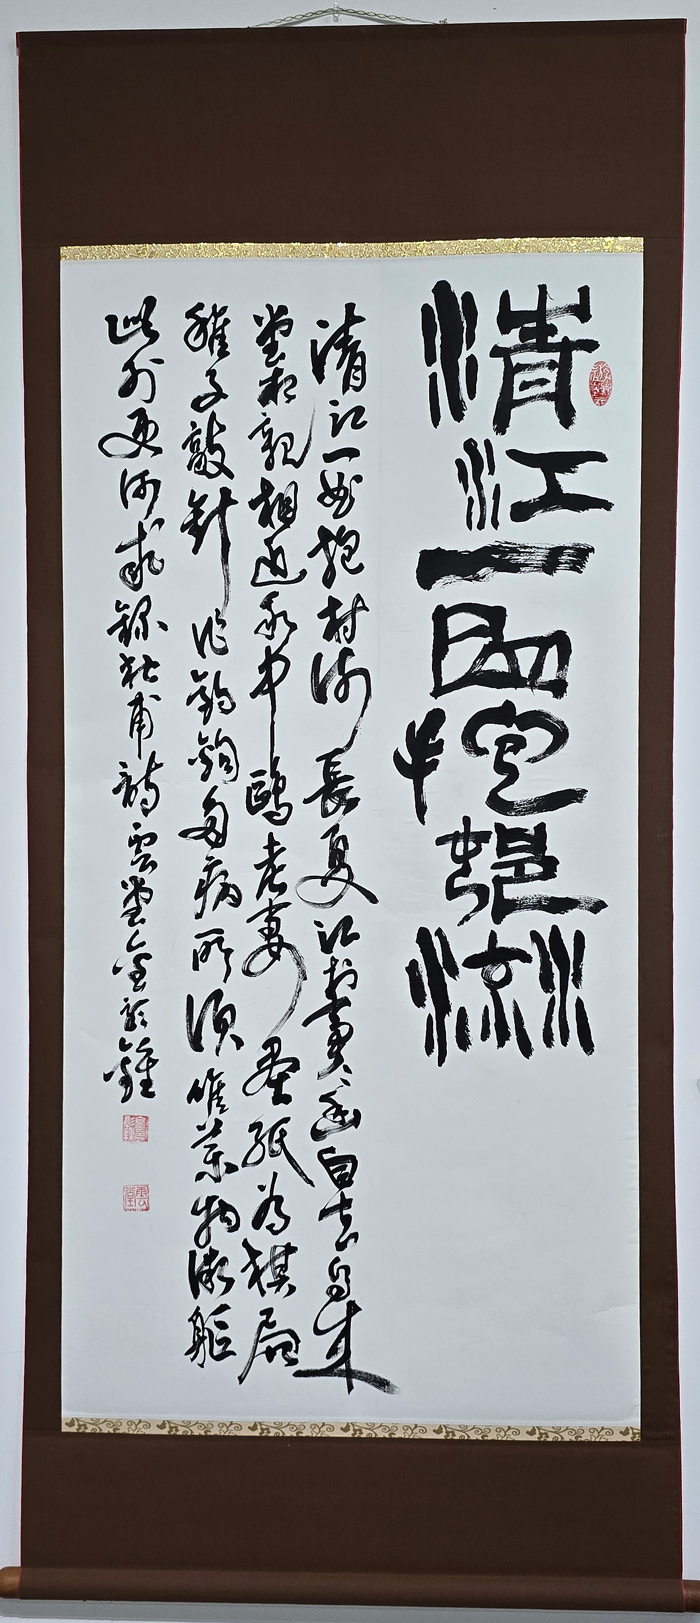 清江一曲抱村流
清江一曲抱村流長夏江村事事幽自去自來
堂相親相近水中鷗老妻畫紙為棋局
稚子敲針作釣鉤多病所須唯藥物微軀
此外更何求錄杜甫詩雲堂金
雲堂